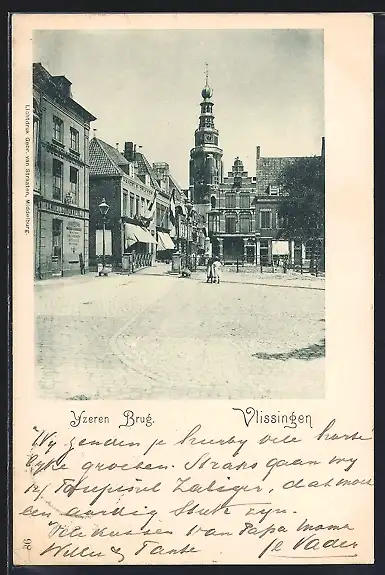 Lichtdruk Gebr. van Straaten, Middelburg.
Yzeren Brug. Vlissingen
Wy zenden je hierby vele harte
lyke groeten. Straks gaan wy
Zaliger, dat moet
een aardig stuk zyn.
Vele kussen van Papa mama
Willem & Tante
je Vader
98